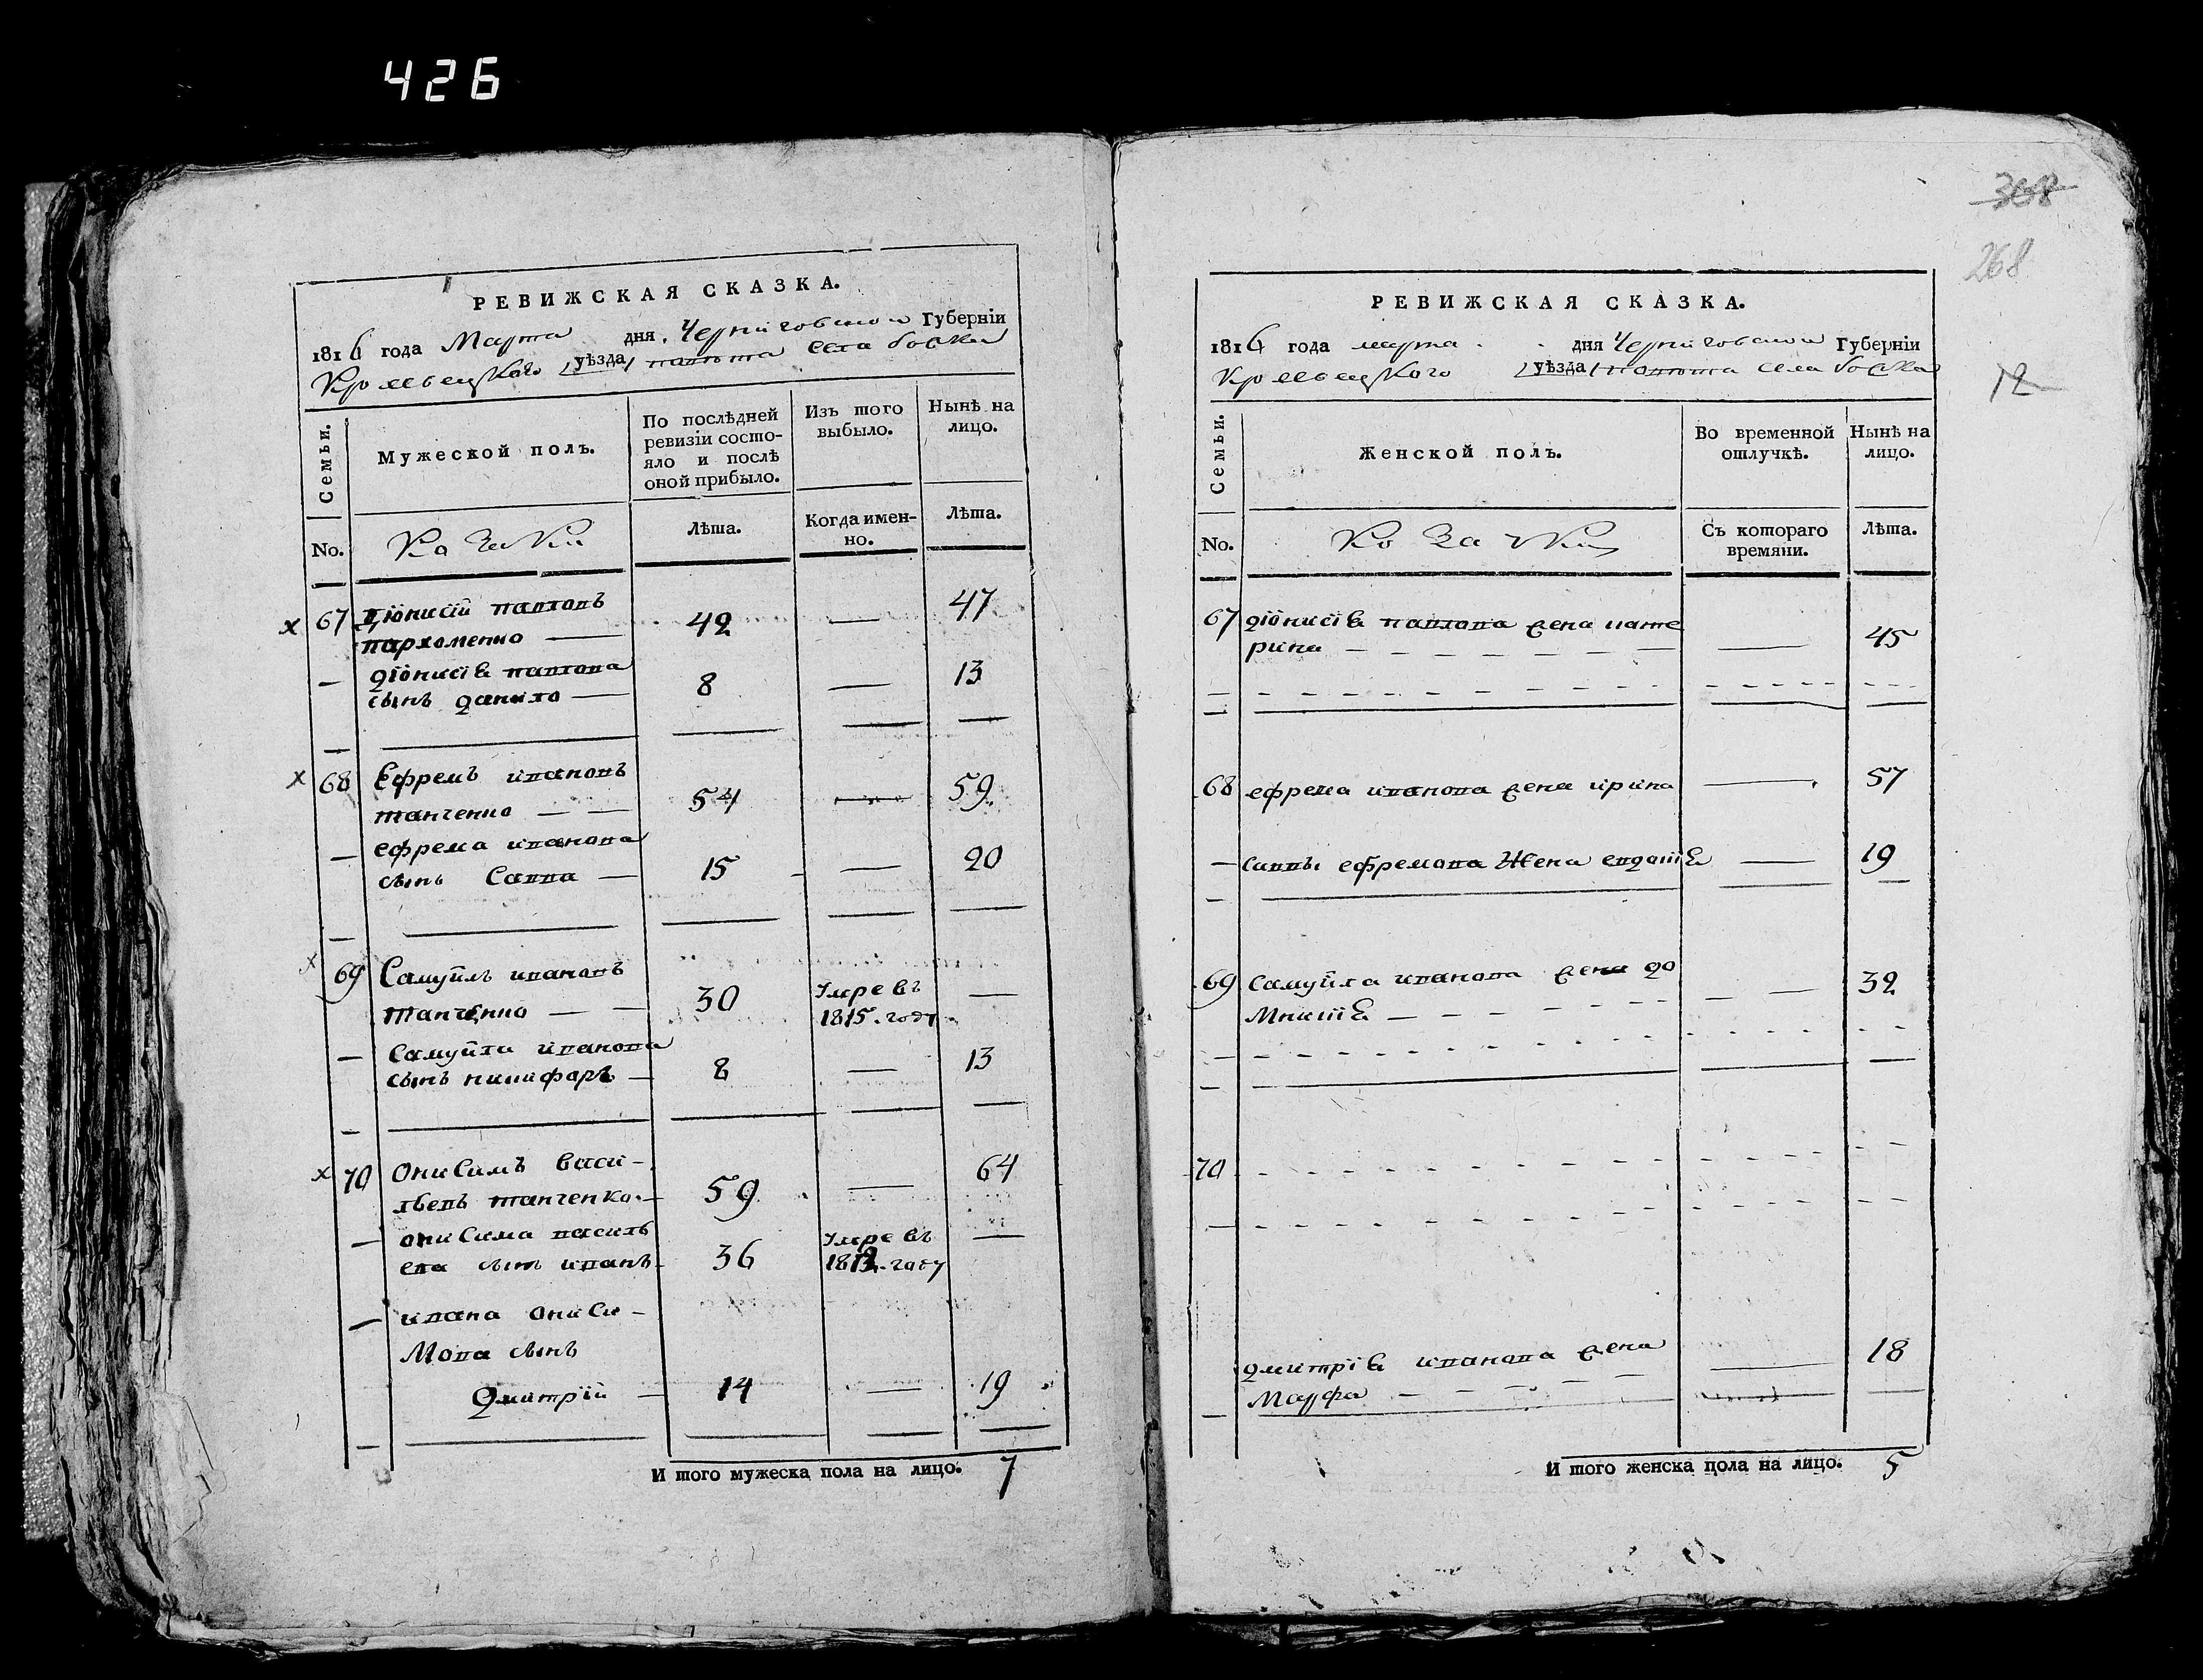 426
РЕВИЖСКАЯ СКАЗКА.
1816 года Марта дня Черниговской Губерніи
Кролевецкого уѣзда повета села
Семьи.
Мужеской полъ.
По послѣдней ревизіи состо-
яло и послѣ оной прибыло.
Изъ того выбыло.
Нынѣ на лицо.
No.
Козаки
Лѣта.
Когда имен-
но.
Лѣта.
67 Діонисій павловъ
пархоменко — 42 — 47
— діонисія павлова
сынъ данило — 8 — 13
68 Ефремъ ивановъ
танченко — — 54 — 59
— ефрема иванова
сынъ Савва — 15 — 20
69 Самуйлъ ивановъ
танченко — — 30 Умре въ
1815 году —
— Самуйла иванова
сынъ никифоръ — 8 — 13
70 Онисимъ васи-
льевъ танченко — 59 — 64
— онисима василь
ева сынъ иванъ 36 Умре въ
году —
— ивана ониси-
мова сынъ
Дмитрій — 14 — 19
И того мужеска пола на лицо. 7
368
268
12
РЕВИЖСКАЯ СКАЗКА.
1816 года марта дня Черниговской Губерніи
Кролевецкого уѣзда повета села
Семьи.
Женской полъ.
Во временной отлучкѣ.
Нынѣ на лицо.
No.
Козачки
Съ котораго времяни.
Лѣта.
67 діонисія павлова жена кате
рина — 45
68 ефрема иванова жена ирина — 57
— саввы ефремова Жена евдокія — 19
69 Самуйла иванова жена до
мникія — 32
70
дмитрія иванова жена
Марфа — 18
И того женска пола на лицо. 5